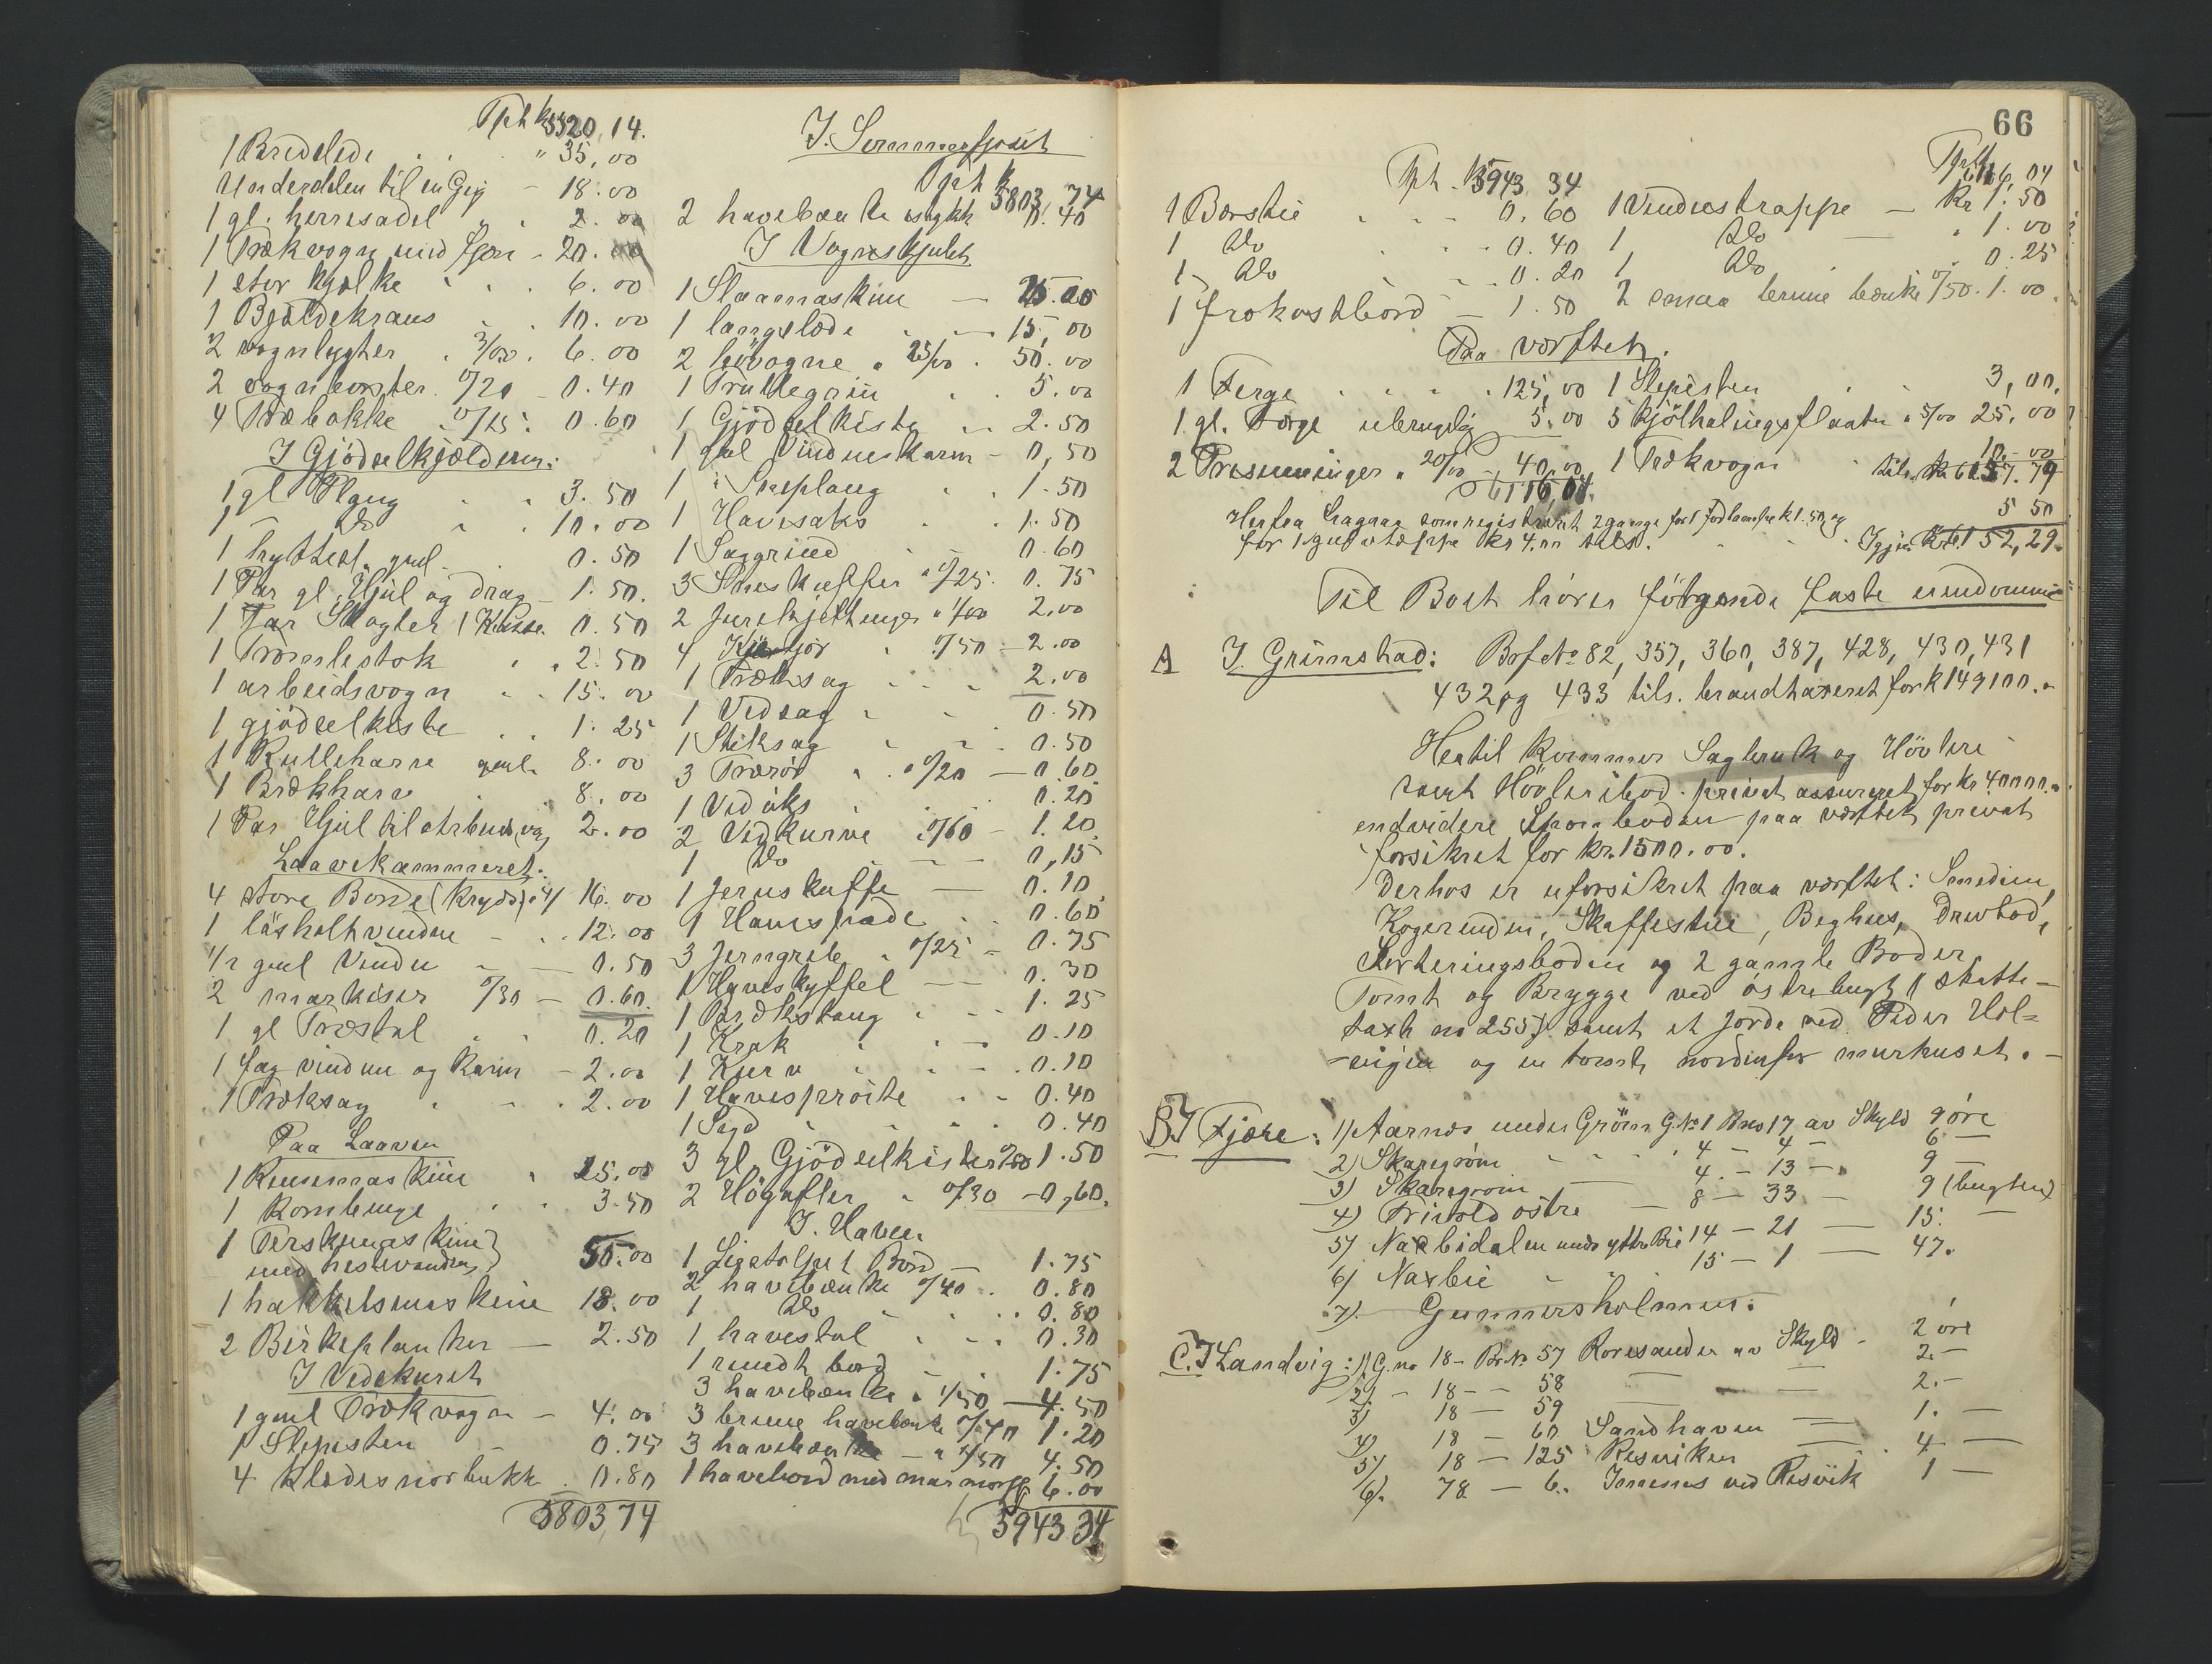 Tpt k 5520,14.
1 Bredslede " 35,00
Underdelen til en Gig - 18.00
1 gl. herresadel " 2.00
1 Trækvogn med fjær - 20.00
1 stor kjælke 6.00
1 Bjældekrans 10.00
2 vognlygter 3/00 6.00
2 vognbørster 0/20 0.40
4 Træbakke 0/15 0.60
I Gjødselkjælderen:
1 gl Plaug 3.50
1 - Do 10.00
1 hyttest. gml. 0.50
1 Par gl. Hjul og Drag 1.50.
1 Par Skagler 1 Kasse 0.50
1 Tromlestok 2.50
1 arbeidsvogn 15.00
1 gjødselkiste 1.25
1 Rulleharv gml. 8.00
1 Brækharv 8.00
1 Par Hjul til arbeidsvog 2.00
Laavekammeret:
4 store Borde (kryds) a 4/ 16.00
1 låsholtvindu - 12.00
1/2 gml Vindu 0.50
2 markiser 0/30 - 0.60.
1 gl Træstol 0.20
1 fag vindu og Karm - 2.00
1 Træksag 2.00
Paa Laaven
1 Rensemaskine 25.00
1 Kornbinge 3.50
1 Terskemaskine
med hestevandring 55.00
1 hakkelsmaskine 18.00
2 Birkeplanker - 2.50
I Vedskuret
1 gml Trækvogn - 4.00
1 Slepesten - 0.75
4 Klædesnorbukk 0.80
5803,74
I. Sommerfjøset
Tpt k 5803,74
2 havebænke 0.40
I Vognskjulet
1 Slaamaskine - 25.00
1 langslæde - 15,00
2 høvogne a 25/00 50.00
1 Trullegrin 5.00
1 Gjødselkiste 2.50
1 gml Vindueskarm - 0,50
1 " Sneplaug 1.50
1 Havesaks 1.50
1 Saggrind 0.60
3 Sneskuffer a 0/25. 0.75
2 Jernkjettinger a 1/00 2.00
4 0/50 - 2.00
1 Træksag 2.00
1 Vedsag 0.50
1 Stiksag 0.50
3 Trærør a 0/20 - 0.60
1 Vedøks 0.20
2 Vedkurve 0/60 - 1.20
1 Do - 0,15
1 Jernskuffe - 0.10
1 Havespade 0.60
3 Jerngreb 0/25 - 0.75
1 Haveskyffel - 0.30
1 Brækstang 1.25
1 Krak 0.10
1 Kurv 0.10
1 Havesprøite - 0.40
1 Sigd 0.40
3 gl. Gjødselkister 0/50 1.50
2 Høgafler 0/30 - 0,60.
I. Haven
1 Bord - 1.75
2 havebænke 0/40 0.80
1 Do 0.80
1 havestol 0.30
1 rundt bord 1.75
3 havebænke a 1/50 - 4.50
3 brune havebænke 0/40 1.20
3 havebænke - a 1/50 4.50
1 havebord med marmorpl 6.00
5943.34
66
Tpt. k 5943 34
1 Børstie 0.60
1 Do 0.40
1 - Do 0.20
1 frokostbord - 1.50
Tpt k 6116,04
1 Vinduestrappe - Kr 1.50
1 Do - " 1.00
1 Do 0.25
2 smaa brune bænke 0/50. 1.00
Paa værftet.
1 Ferge 125,00 1 Slepesten 3,00.
1 gl. Færge ubrugelig 5.00 5 kjølhalingsflaater a 5/00 25.00
2 Presenninger a 20/00 - 40.00 1 Trækvogn 10.00
6116,04. tils. kr 6157.79
Herfra fragaar som registreret 2 gange for 1 Jordlampe k 1.50 og 5 50
for 1 gulvtæppe kr 4.00 tils. Igjen Kr 6152,29.
Til Boet hører følgende faste eiendomme
A I. Grimstad: Brf No 82, 357, 360, 387, 428, 430, 431
432 og 433 tils. brandtaxeret for k 149100.-
Hertil kommer Sagbruk og Høvleri
samt Høvleribod. privat assureret for kr 40000.-
endvidere Sponboden paa værftet privat
forsikret for kr. 1500.00.
Derhos er uforsikret paa værftet: Smedien,
Kogerenden, Skaffestue, Beghus, Drevbod,
Sorteringsboden og 2 gamle Boder
Tomt og Brygge ved østrebugt (skatte-
taxt no 255). samt et Jorde ved Peder Hol-
-vigen og en tomt nordenfor murhuset. -
B. I Fjære: 1) Aarnes under Grøm G.No 1 Bno 17 av Skyld 9 øre
2) Skaregrøm 4 - 4 - 6 -
3) Skaregrøm 4. - 13 - 9 -
4) Trivold østre - 8 - 33 - 9 (bugten)
5) Naxbidalen under yttre Bie 14 - 21 - 15. -
6) Naxbie 15 - 1 - 47.
7) Gunnersholmen.
C. I Landvig: 1) G. no 18 - Br. No 57 Roresanden av Skyld - 2 øre
2) - 18 - - 58 - - 2. -
3) 18 - 59 - 2. -
4) 18 - 60 Sandhaven - 1. -
5) 18 - 125 Resviken - 4 -
6). 78 - 6. Innenes ved Resvik 1 -